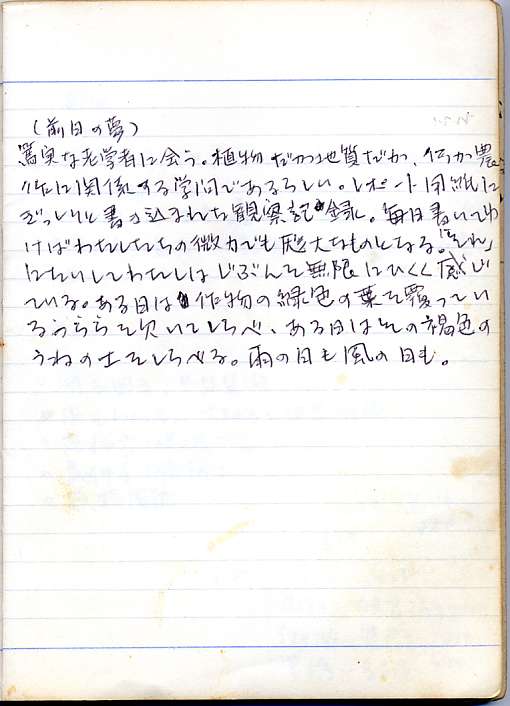 (前日の夢)
篤実な老学者に会う。植物だか地質だか、何か農
作に関係する学問であるらしい。レポート用紙に
ぎっしりと書き込まれた観察記録。毎日書いてゆ
けばわたしたちの微力でも厖大なものとなる。「それ」
にたいしてわたしはじぶんを無限にひくく感じ
ている。ある日は作物の緑色の葉を覆ってい
る を欠いてしらべ、ある日はその褐色の
うねの土をしらべる。雨の日も風の日も。